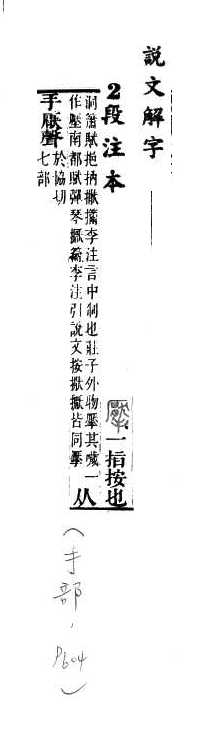 說文解字
2段注本
擪 一指按也
洞簫賦挹抐擫㩶李注言中制也莊子外物擪其噦一
作壓南都賦彈琴擫籥李注引說文按擫擫皆同擪
从
手厭聲
於協切
七部
(手部, P604)